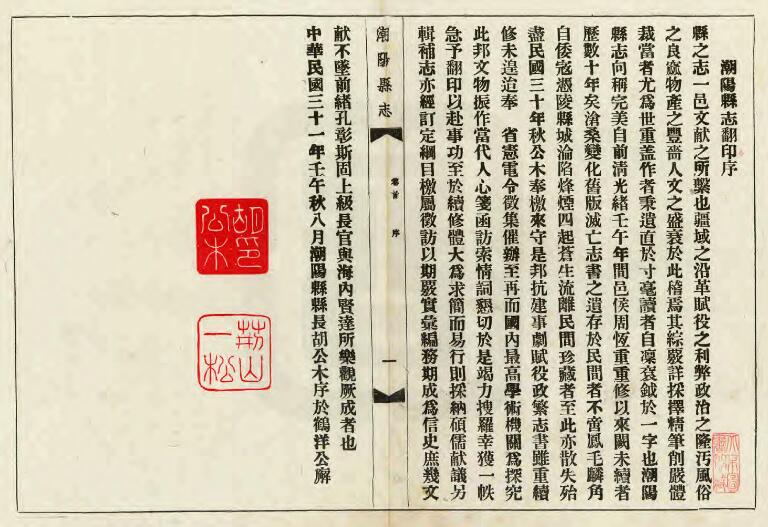 潮陽縣志翻印序
縣之志一邑文献之所繫也疆域之沿革賦役之利弊政治之隆汚風俗
之良窳物產之豐嗇人文之盛衰於此稽焉其綜覈詳採擇精筆削嚴體
裁當者尤爲世重盖作者秉遺直於寸毫讀者自凜袞鉞於一字也潮陽
縣志向稱完美自前淸光緒壬午年間邑侯周恆重重修以來闕未續者
歷數十年矣滄桑變化舊版滅亡志書之遺存於民間者不啻鳳毛麟角
自倭寇憑陵縣城淪陷烽煙四起蒼生流離民間珍藏者至此亦散失殆
盡民國三十年秋公木奉檄來守是邦抗建事劇賦役政繁志書雖重續
修未遑迨奉 省憲電令徵集催辦至再而國內最高學術機關爲探究
此邦文物振作當代人心箋函訪索情詞懇切於是竭力搜羅幸獲一帙
急予翻印以赴事功至於續修體大爲求簡而易行則採納碩儒献議另
輯補志亦經訂定綱目檄屬徵訪以期覈實彙編務期成爲信史庶幾文
献不墜前緒孔彰斯固上級長官與海內賢達所樂觀厥成者也
中華民國三十一年壬午秋八月潮陽縣縣長胡公木序於鶴洋公廨
胡公木印
荊山一松
潮陽縣志
卷首 序
一